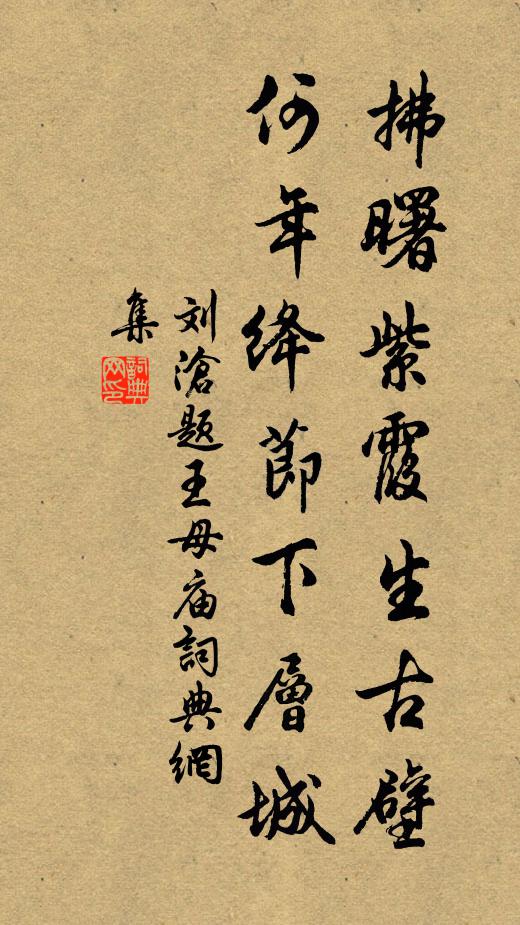 拂曙紫霞生古壁
何年绛節下層城
刘滄题王母庙詞典網
集
詞典网印